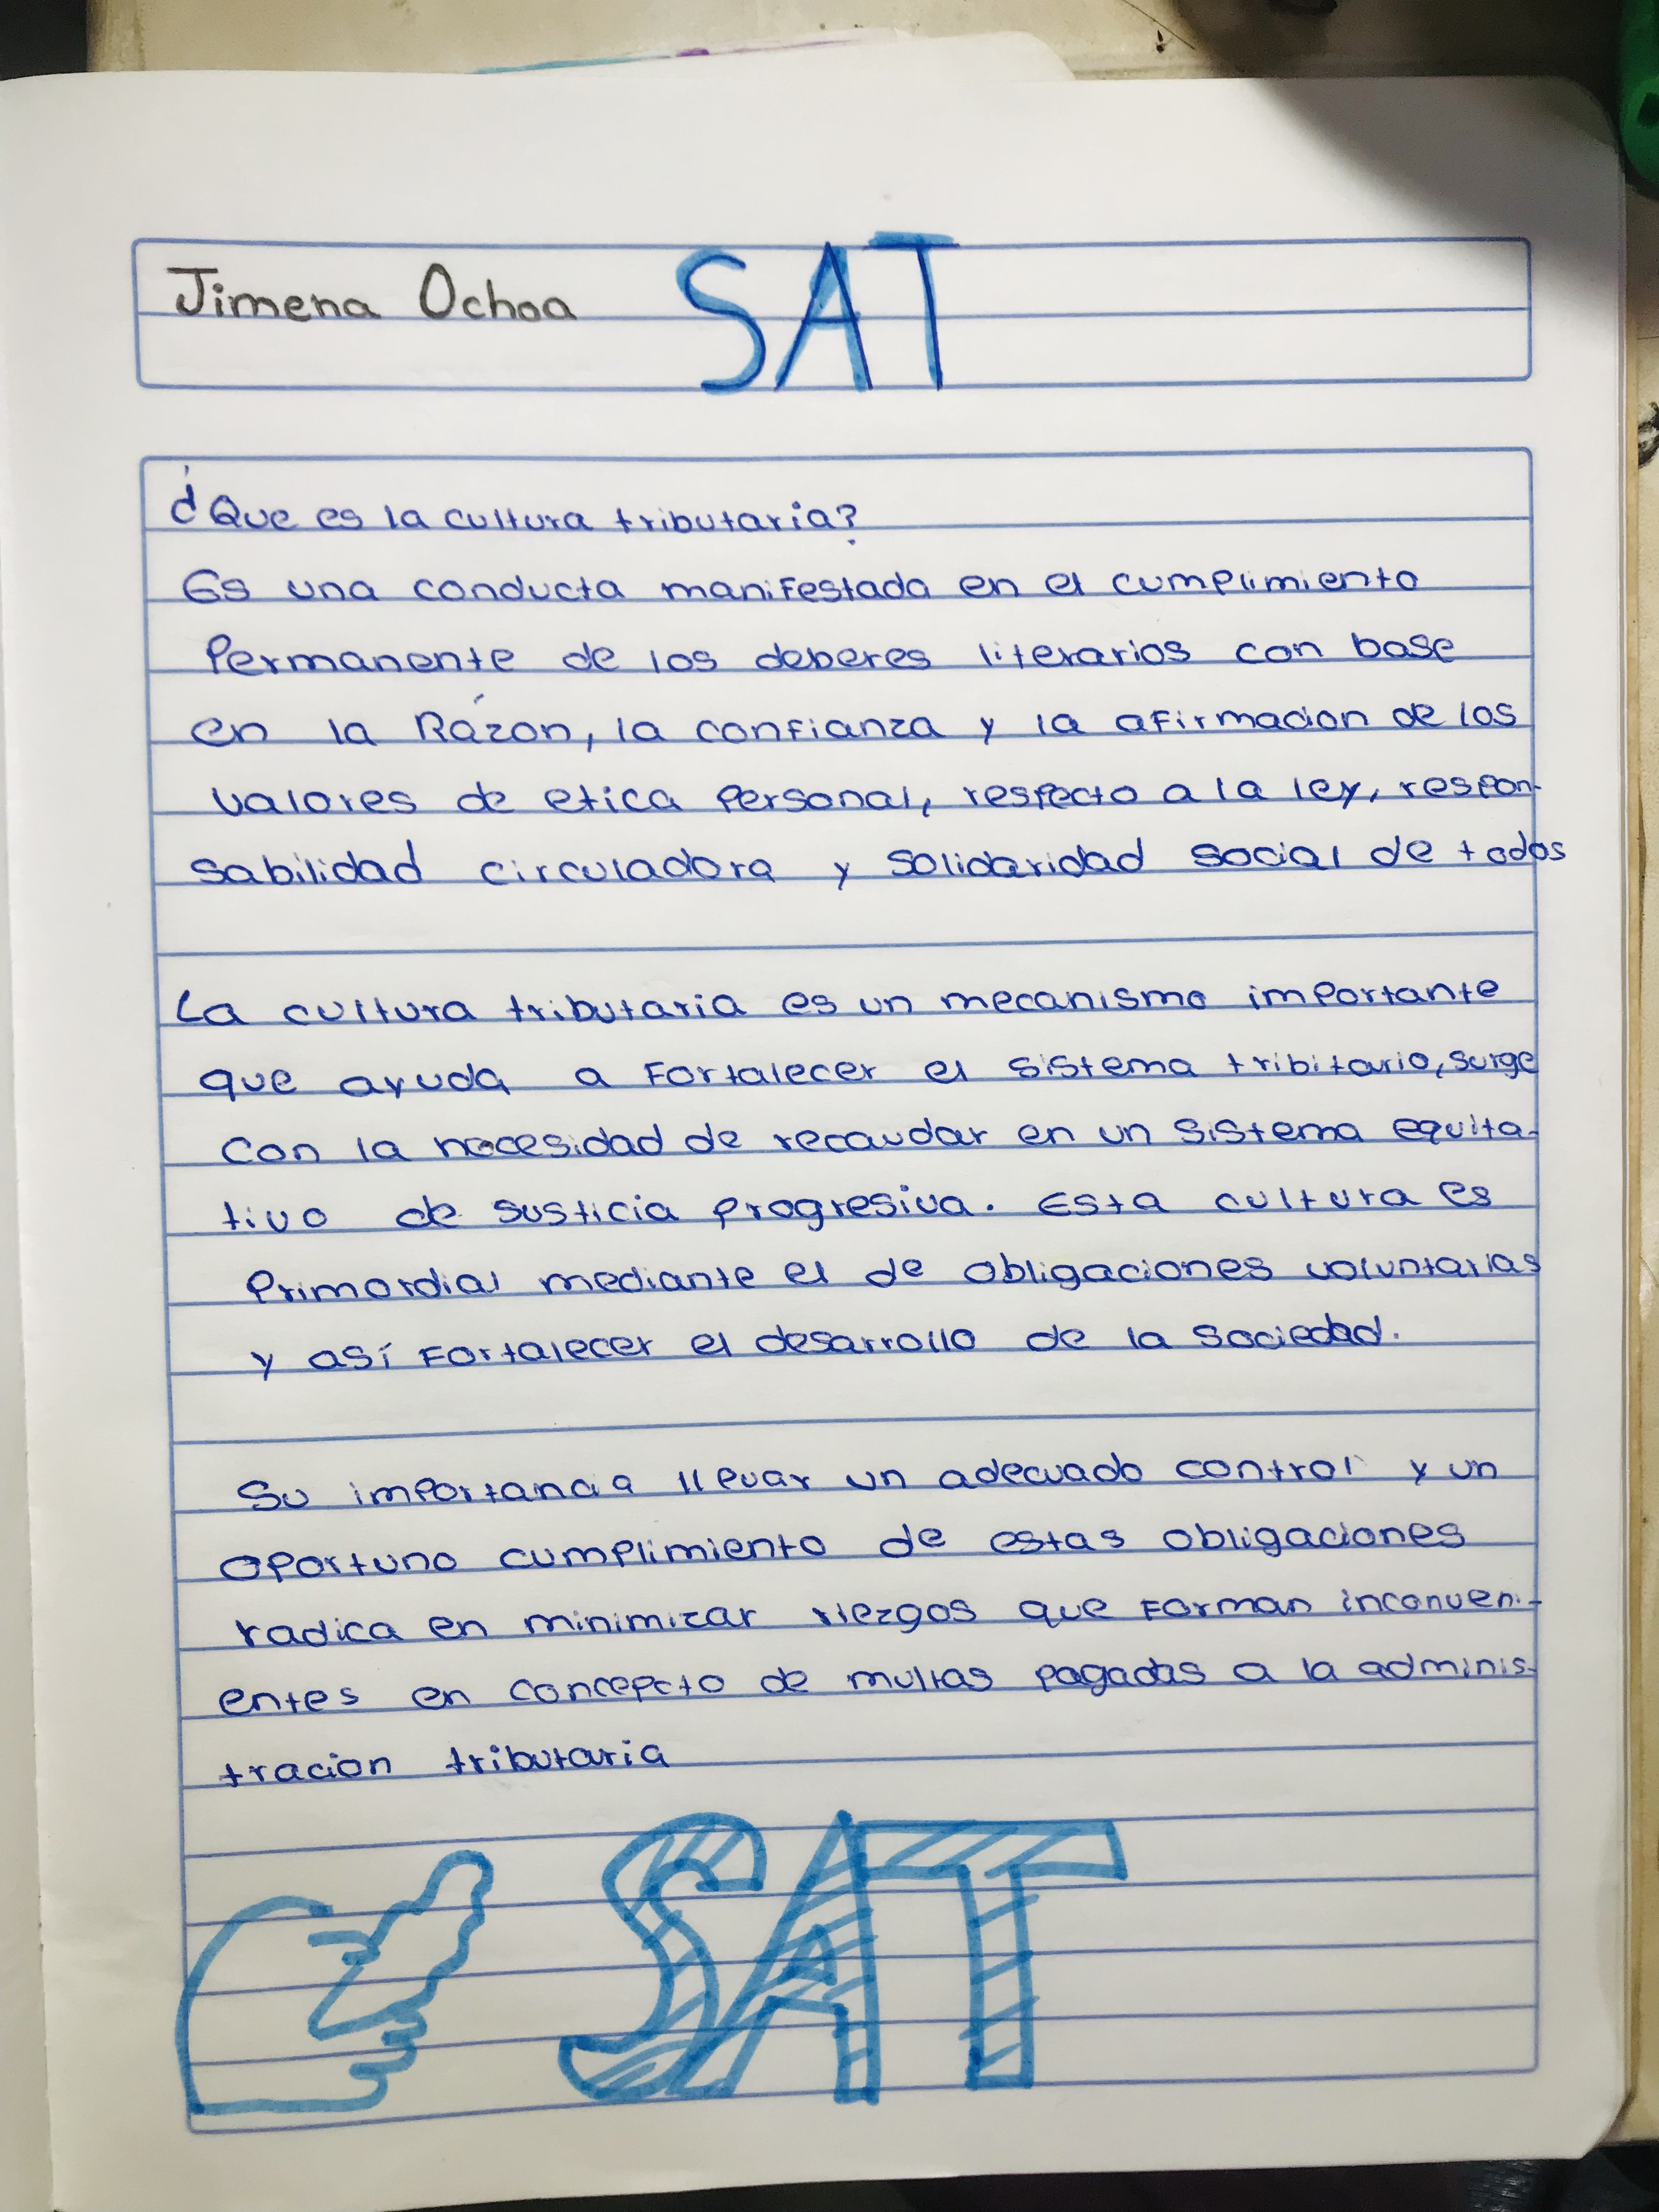 Jimena Ochoa SAT
¿Que es la cultura tributaria?
Es una conducta manifestada en el cumplimiento
Permanente de los deberes literarios con base
en la Rázon, la confianza y la afirmacion de los
valores de etica Personal, respecto a la ley, respon-
sabilidad circuladora y solidaridad social de todos
La cultura tributaria es un mecanismo importante
que ayuda a Fortalecer el sistema tribitario, surge
con la necesidad de recaudar en un sistema equita-
tivo de susticia progresiva. Esta cultura es
Primordial mediante el de obligaciones voluntarias
y así Fortalecer el desarrollo de la sociedad.
Su importancia llevar un adecuado control y un
oportuno cumplimiento de estas obligaciones
radica en minimizar riezgos que Forman inconveni-
entes en concepcto de multas pagadas a la adminis-
tracion tributaria
SAT